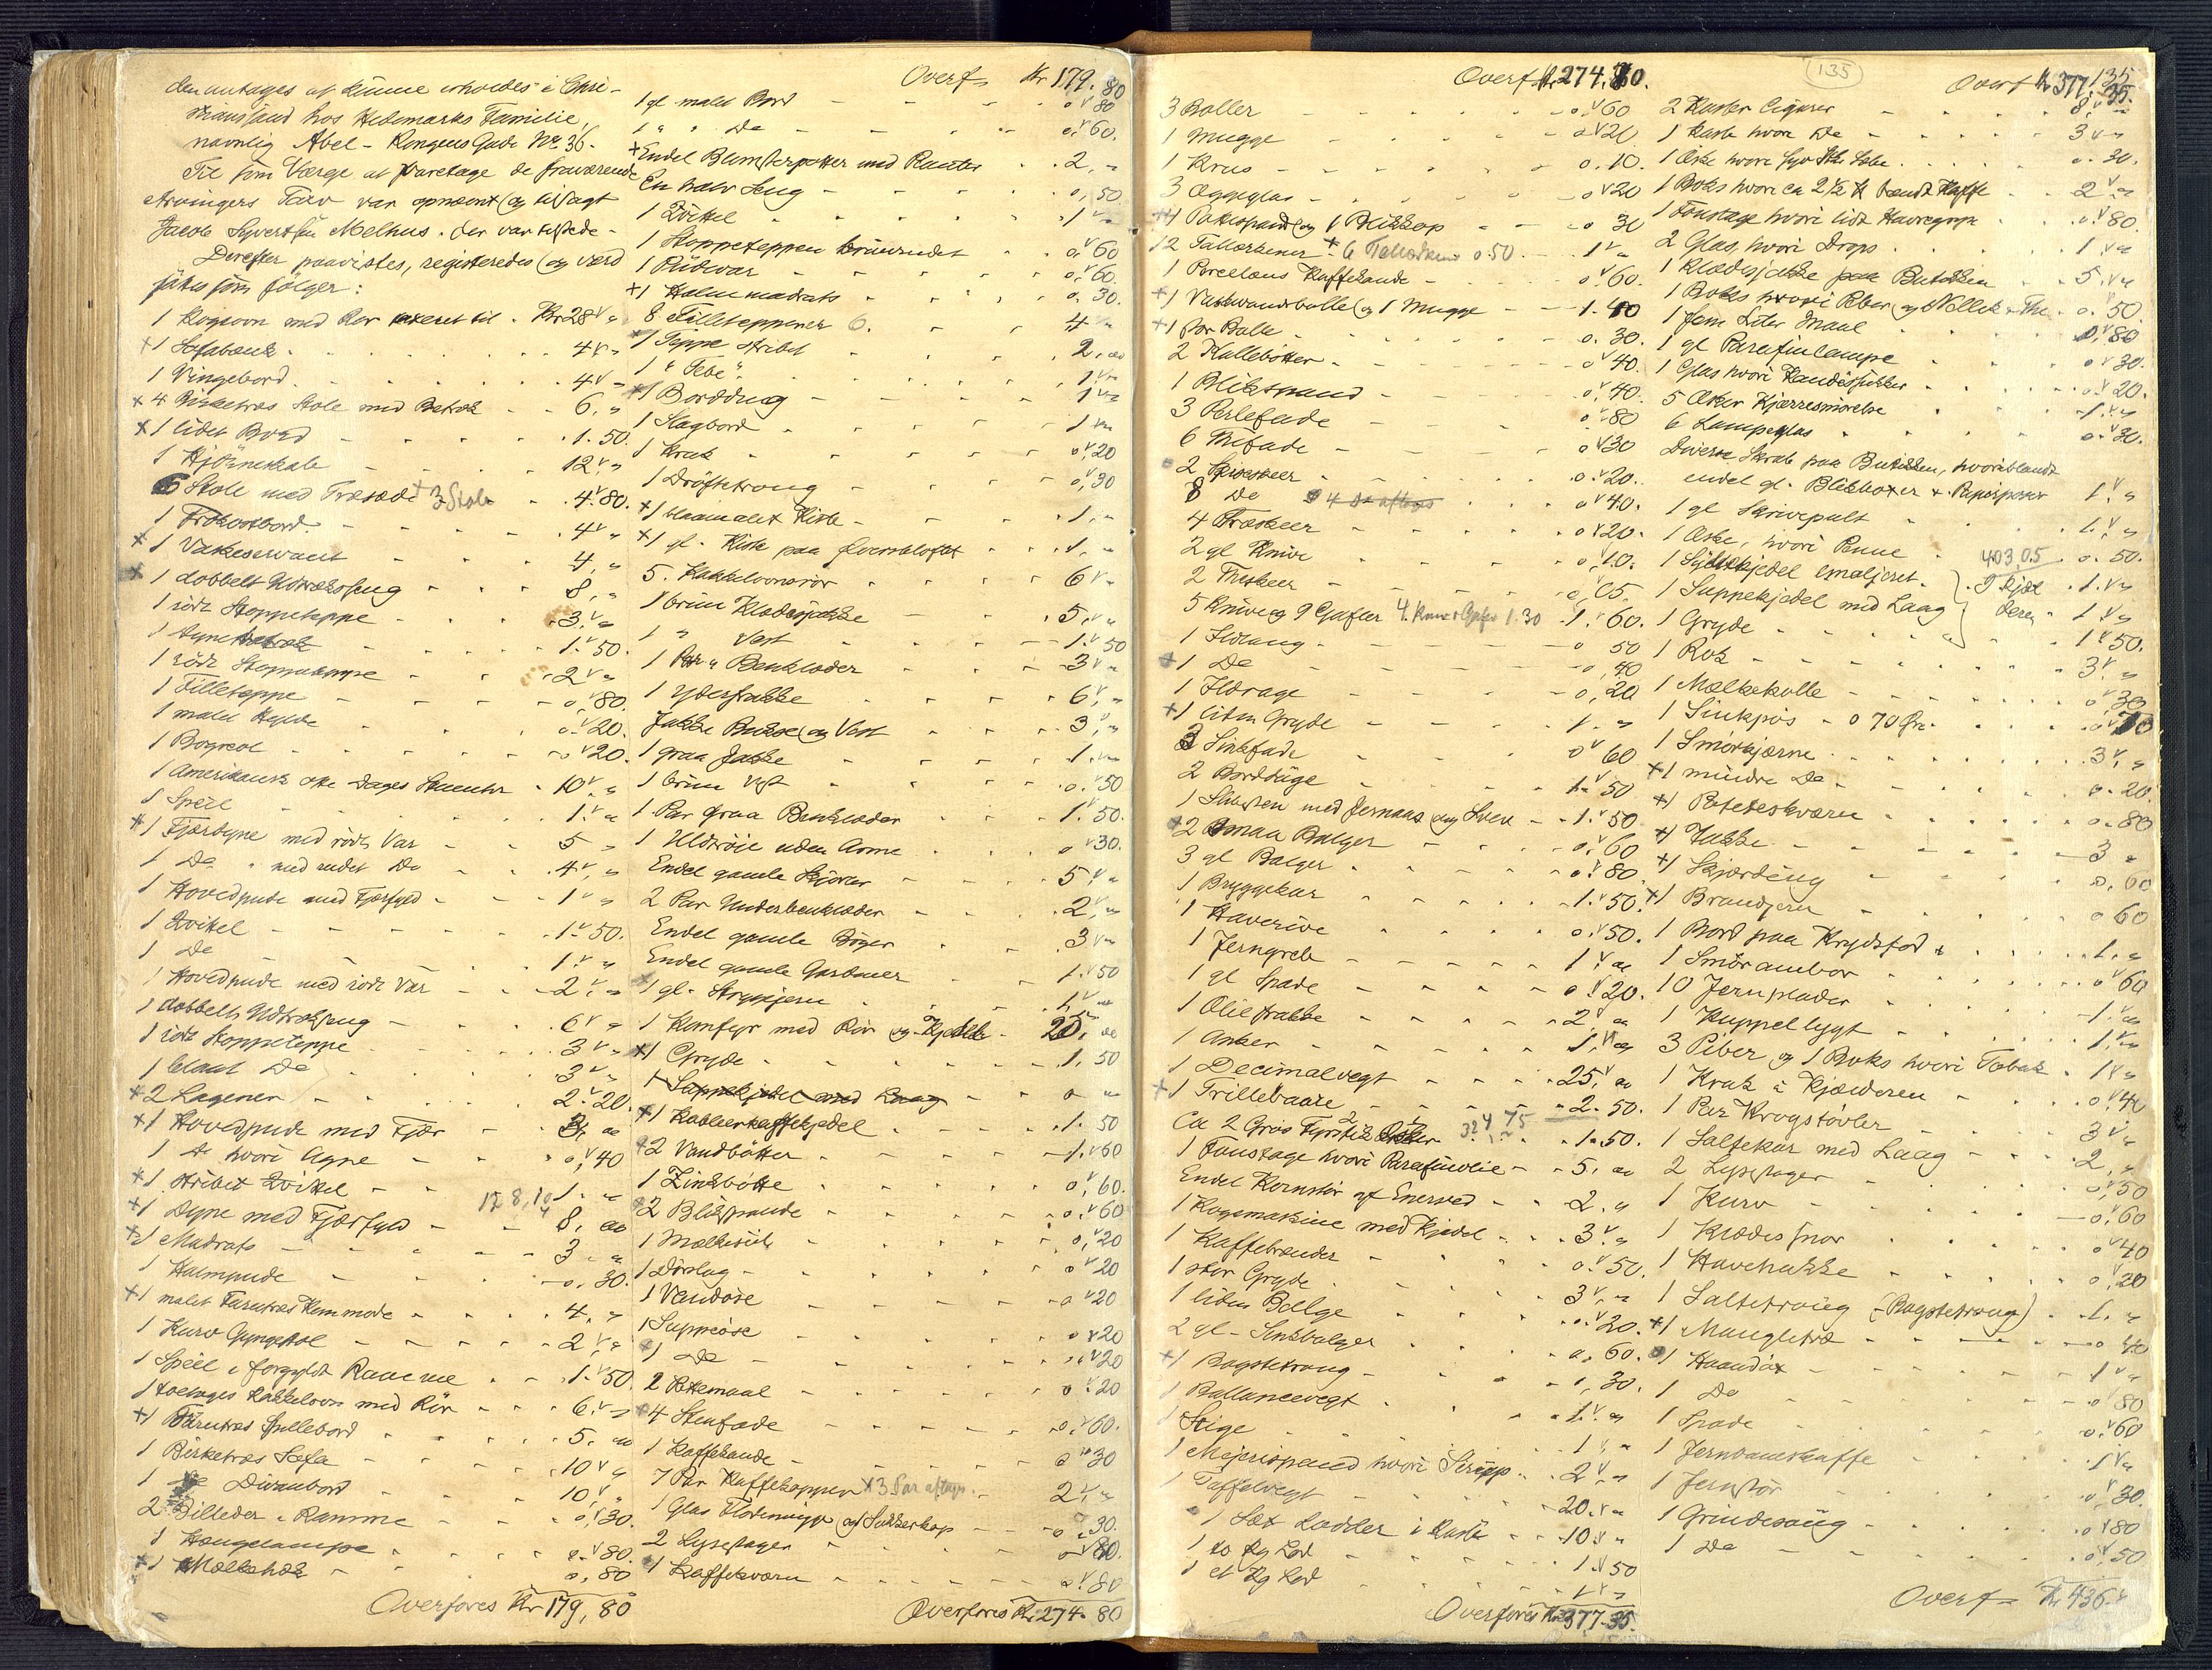 den antages at kunne erholdes i Chri-
stiansand hos Hedemarks Familie,
navnlig Abel - Kongens Gade No 36.
Til som Værge at varetage de fraværende
Arvingers Tarv var opnævnt og tilsagt
Jacob Syvertsen Melhus. der var tilstede -
Derefter paavistes, registreredes og værd
sattes som følger:
1 Kogeovn med Rør taxeret til . Kr 28 "
+1 Sofabænk 4 "
1 Vingebord 4 "
+ 4 Birketræs Stole med Betræk 6, "
+1 lidet Bord 1. 50.
1 Hjörneskab 12 "
6 Stole med Træsæde + 3 Stole 4. 80.
1 Frokostbord 4 "
+ 1 Vaskeservant 4, "
+ 1 dobbelt Udtræksseng 8, "
1 rödt Stoppeteppe 3, "
1 Dyne 1. 50.
1 rödt Stoppeteppe 2 "
1 Filleteppe 0, 80.
1 malet Hylde 0. 20.
1 Bogreol 0. 20.
1 Amerikansk otte Dages Stueuhr 10, "
1 Speil 1. "
+1 Fjærdyne med rödt Var 5 "
1 Do " med rudet Do 4, "
1 Hovedpude med Fjærfyld 1 "
1 Dvikel 1. 50.
1 Do 1. "
1 Hovedpude med rödt Var 2. "
1 dobbelt Udtræksseng 6 "
1 rödt Stoppeteppe 3 "
1 blaat Do 3 "
+2 Lagener 2. 20.
+1 Hovedpude med Fjær 3, "
1 Do hvori Agne 0, 40
+1 stribet Dvikel 1. "
+1 Dyne med Fjærfyld 8, "
+1 Madrats 3 "
1 Halmpude 0. 30.
+1 malet Furutræs Kommode 4, "
1 Kurv Gyngestol 2, "
1 Speil i forgyldt Ramme 1. 50
1 toetages Kakkelovn med Rör 6. "
+1 Furutræs Spillebord 5. "
1 Birketræs Sofa 10 "
1 Do Divanbord 10, "
2 Billeder i Ramme 0, 30.
1 Hængelampe 0. 80.
+1 Mælkehæk 0, 80
Overføres Kr 179, 80
Overf. Kr 179. 80
1 gl malet Bord 0 80
1 " " Do 0, 60.
+Endel Blomsterpotter med Planter 2, "
En halv Seng 0, 50
1 Dvikel 1 "
1 Stoppeteppen brunrudet 0, 60
1 Pudevar 0, 60.
+1 Halmmadrats 0. 30.
8 Filleteppener 6. 4 "
+1 Teppe stribet 2, "
1 " Febe" 1, "
+1 Borddug 1 "
1 Slagbord 1 "
1 Krak 0, 20
1 Dröftetroug 0, 30
+1 blaamalet Kiste 1, "
+1 gl. Kiste paa Qværnloftet 1, "
5. Kakkelovnsrör 6 "
1 brun Klædesjakke 5, "
1 " Vest 1. 50
1 Par " Benklæder 3 "
1 Yderfrakke 6, "
Jakke Bukse og Vest 3, "
1 graa Jakke 1. "
1 brun Vest 0. 50
1 Par graa Benklæder 1. 50.
1 Uldtröie uden Arme 0 30.
Endel gamle Skjorter 5, "
2 Par Underbenklæder 2, "
Endel gamle Böger 3 "
Endel gamle Gardiner 1. 50
1 gl. Strygejern 1. "
1 Komfyr med Rör og Kjedele 20, "
+1 Gryde 1. 50
1 Suppekjedel med Laag 0 "
+1 Kobberkaffekjedel 1. 50
+2 Vandbötter 1. 60
1 Zinkbötte 0, 60.
2 Blikspande 0. 60
1 Mælkesil 0, 20
1 Dörslag 0 20
1 Vandöse 0 20
1 Suppeöse 0 20
+1 Do 20
2 Pottemaal 0. 20
+4 Stenfade 0. 60.
1 Kaffekande 0 30
7 Par Kaffekopper + 3 Par aftages 2, "
1 Glas Flödemugge og Sukkerkop 0. 30.
2 Lysestager 0 80.
1 Kaffekværn 0. 80
Overføres Kr. 274. 80
Overf. Kr 274. 80.
3 Boller 0 60
1 Mugge 0 20
1 Krus 0. 10.
3 Æggeglas 0 20
+1 Potte og 1 Blikkop 0 30
12 Tallerkener + 6 Tallerkener 0.50 1 "
1 Porcelæns Kaffekande 0. 60.
+1 Vaskevandsbolle og 1 Mugge 1. 40
+1 Par Balle 0. 30.
2 Kullebötter 0 40.
1 Blikspand 0, 40.
3 Perlefade 0. 80
6 Trefade 0 30
2 Spiseskeer 0. 20.
8 Do 4 Do aftages 0 40.
4 Træskeer 0 20.
2 gl Knive 0, 10.
2 Theskeer 0, 05.
5 Knive og 9 Gafler 4. Knive + Gafler 1.30 1. 60.
1 Ildtang 0 50
+1 Do 0, 40
1 Ildrage 0, 20
+1 liten Gryde 1. "
3 Sinkfade 0 60
2 Borddüge 1. 50
1 Skuffen med Jernaas og Svein 1. 50
+2 smaa Balger 0, 60
3 gl Balger 0. 80.
1 Bryggekar 1. 50.
1 Haverive 0. 50.
1 Jerngreb 1 "
1 gl Spade 0. 20.
1 Oliefrakke 2, "
1 Anker 1. "
1 Decimalvegt 25, "
+1 Trillebaare 2. 50.
324 75
Ca 2 Gros Fyrstik Æsker 1. 50.
1 Foustage hvori Parafinolie 5, "
Endel Kornstör af Enerved 2. "
1 Kogemaskine med Kjedel 3. "
1 Kaffebrænder 0. 50.
1 stor Gryde 3, "
1 liden Balge 0. 20.
2 gl. Sinkbalger 0. 60.
+1 Bagstetroug 0, 30.
1 Ballancevegt 1. "
1 Stige 1, "
1 Meierispand hvori Sirup 2, "
1 Taffelvegt 20. "
1 Sæt Lodder i Kasse 10 "
1 to Kg Lod 1 50
1 et Kg Lod 1 "
Overføres Kr. 377. 35.
135
135
Overf Kr 377. 35.
2 Kasser Cigarer 8, "
1 Kasse hvori Do 3 "
1 Æske hvori syv Stk. Sæbe 0. 30.
1 Boks hvori ca 2 1/2 K brændt Kaffe 2 "
1 Foustage hvori lidt Havregryn 0. 80.
2 Glas, hvori Drops 1 "
1 Klædesjakke paa Butikken 5. "
1 Boks hvori Peber og Nellik + The 0. 50.
1 fem Liter Maal 0, 80
1 gl Parafinlampe 0 30.
1 Glas hvori Kandissukker 0. 20.
5 Æsker Kjærresmörelse 1. "
6 Lampeglas 0. 30.
Diverse Skrab paa Butikken, hvoriblandt
endel gl. Blikboxer & Papirposer 1. "
1 gl Skrivepult 1. "
1 Æske, hvori Penne 403 05 0. 50.
1 Syltekjedel emaljeret. 1. "
1 Suppekjedel med Laag 1 "
1 Gryde 1. 50.
1 Rok 3. "
1 Mælkekolle 0, 30
1 Sinkpös - 0 70 Öre 0. 70
1 Smörkjærne 3, "
+1 mindre Do 0. 20.
+1 Poteteskværn 0. 80
+1 Hakke 3 "
+1 Skjærding 0, 60
+1 Brandjern 0 60
1 Bord paa Krydsfod 1. "
1 Smörambar 0. 60
10 Jernplader 1. "
1 Kuppellygt 1. "
3 Piber og 1 Boks hvori Tobak 1 "
1 Krak i Kjælderen 0. 40
1 Par Krogstövler 3 "
1 Saltekar med Laag 2, "
2 Lysestager 0, 50
1 Kurv 0. 60
1 Klædessnor 0 40
1 Havehakke 0, 20
1 Saltetroug (Bagstetroug) 1. "
+1 Mangletræ 0 40
1 Haandöx 1 "
1 Do 0 80
1 Spade 0. 60
1 Jernbanskaffe 1 "
1 Jernstör 0, 30.
1 Grindesaug 0 80
1 Do 0. 50
Overf. Kr 436.